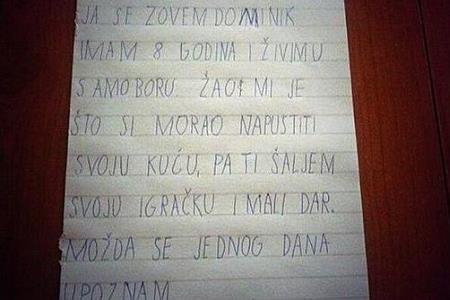 JA SE ZOVEM DOMINIK
IMAM 8 GODINA I ŽIVIM U
SAMOBORU. ŽAO MI JE
ŠTO SI MORAO NAPUSTITI
SVOJU KUĆU, PA TI ŠALJEM
SVOJU IGRAČKU I MALI DAR.
MOŽDA SE JEDNOG DANA
UPOZNAM